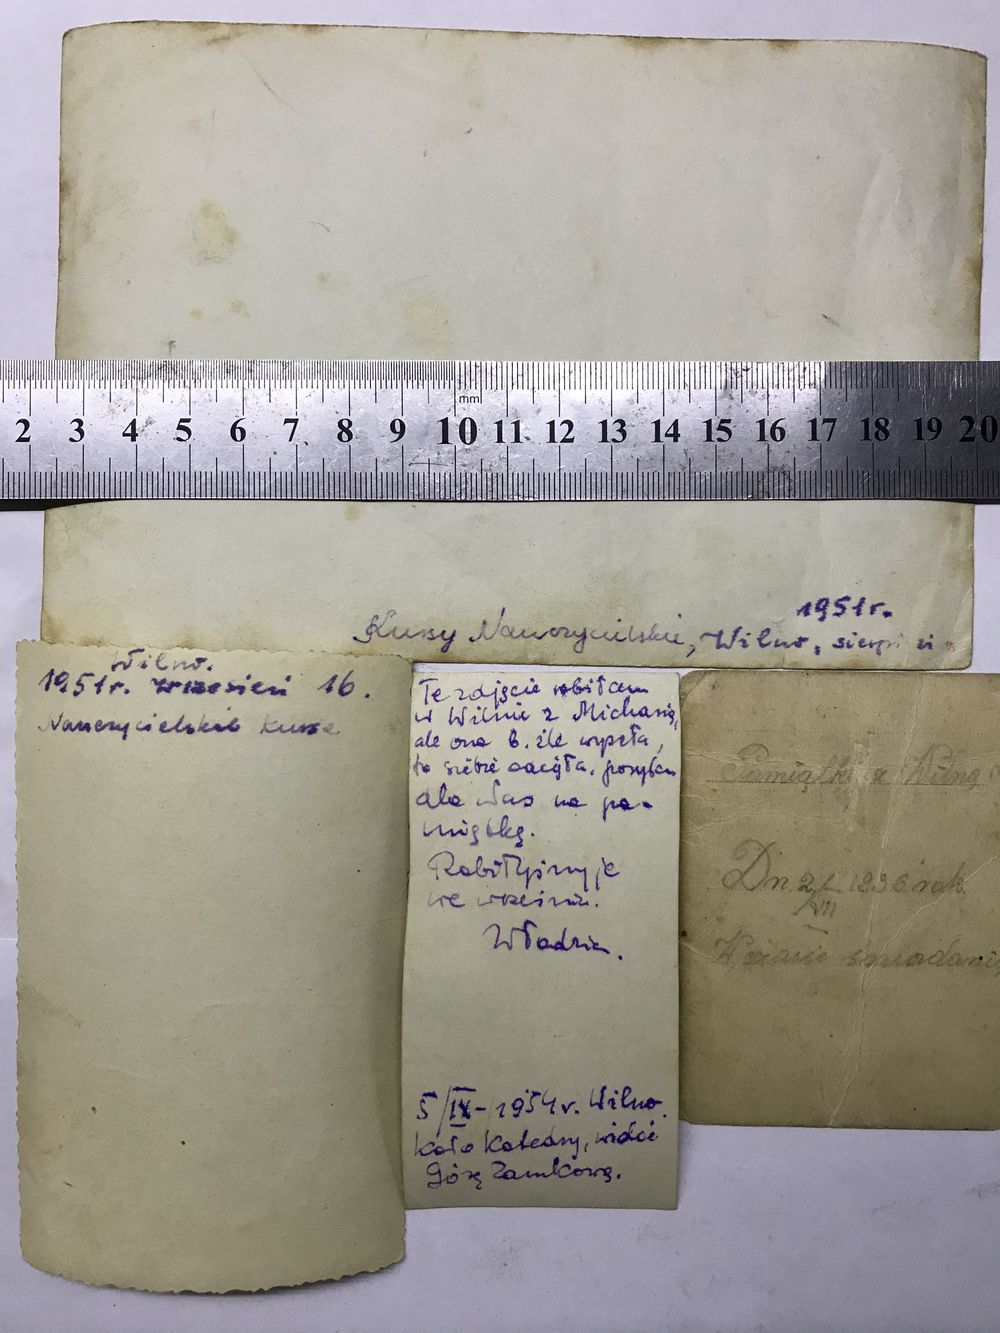 2 3 4 5 6 7 8 9 10 11 12 13 14 15 16 17 18 19 20
mm
1951 r.
Kursy Nauczycielskie, Wilno, sierpień
Wilno.
1951 r. wrzesień 16.
Nauczycielskie Kursa
Te zdjęcie robiłam
w Wilnie z Michasią,
ale ona b. źle wyszła,
to siebie
dla Was na pa-
miątkę.
we wrześniu.
Władzia.
5/IX-1954 r. Wilno.
koło Katedry, widać
Górę Zamkową.
Pamiątka z Wilna
Dn. 2/VII 1936 rok
W czasie śniadania